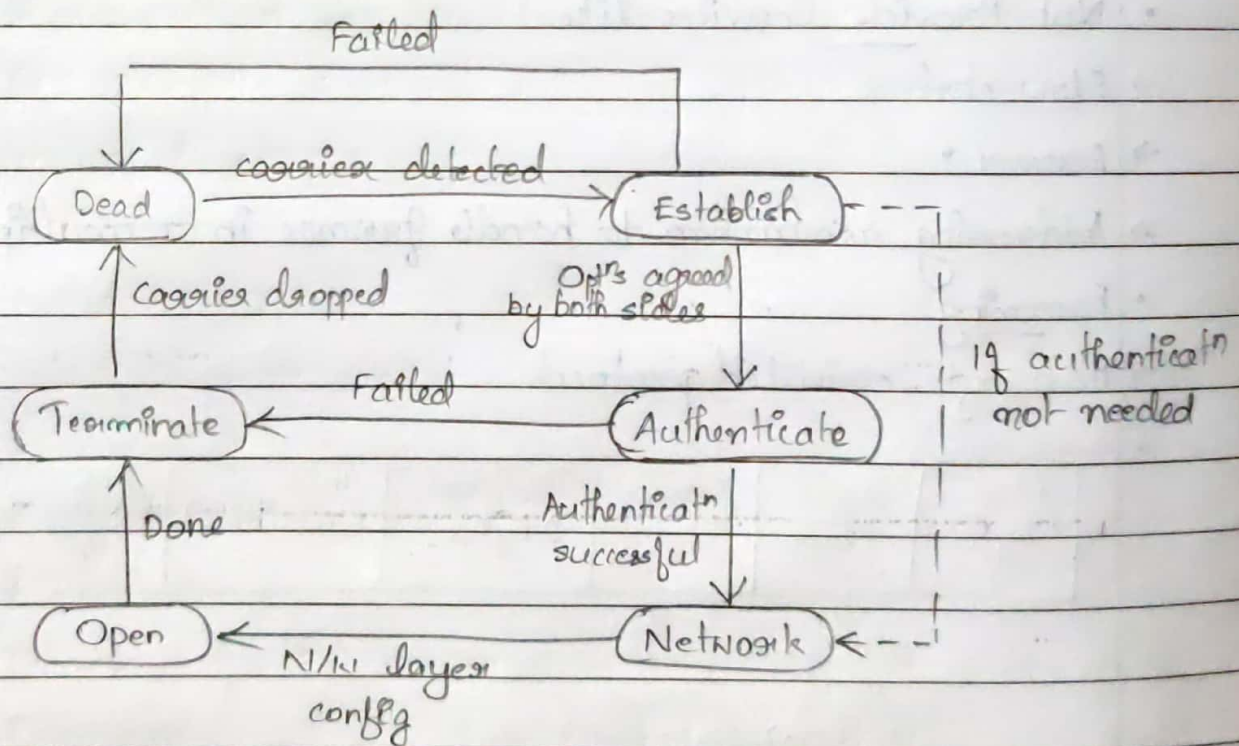 Failed
Dead
carrier detected
Establish
carrier dropped
Optns agreed
by both sides
If authenticatn
not needed
Terminate
Failed
Authenticate
Done
Authenticatn
successful
Open
N/W layer
config
Network